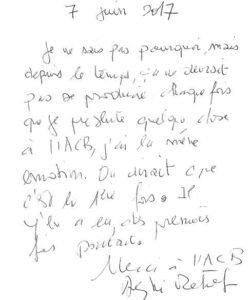 7 juin 2017
Je ne sais pas pourquoi, mais
depuis le temps, ça ne devrait
pas se produire, chaque fois
que je présente quelque chose
à l'ACB, j'ai la même
émotion. On dirait que
c'est la 1ère fois. Il
y en a eu, des premières
fois pourtant.
Merci à l'ACB